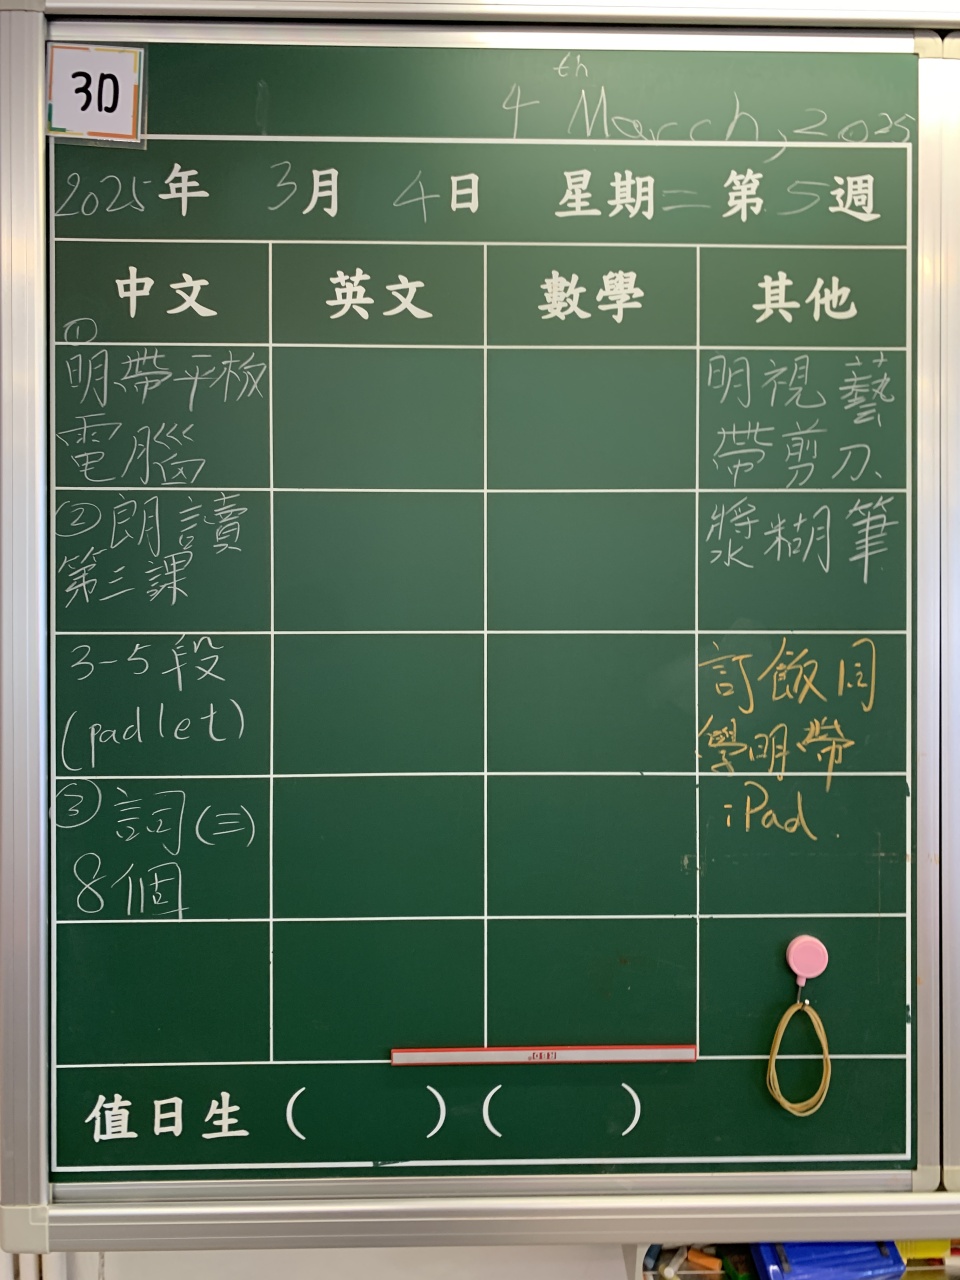 3D
4th March, 2025
2025年 3月 4日 星期二 第5週
中文 英文 數學 其他
①
明帶平板
電腦
②朗讀
第三課
3-5段
(padlet)
③詞(三)
8個
明視藝
帶剪刀、
漿糊筆
訂飯同
學明帶
iPad.
值日生 ( ) ( )